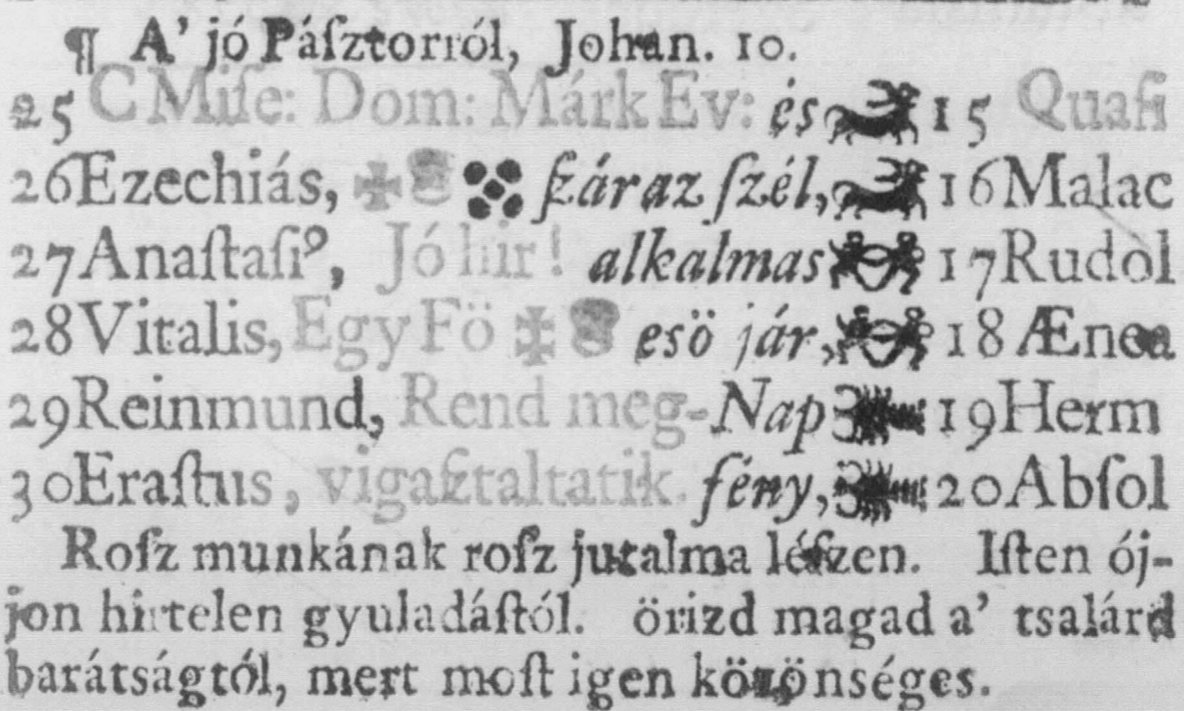 ¶ A' jó Páſztorról, Johan. 10.
25 C Miſe: Dom: Márk Ev: és 15 Quaſi
26 Ezechiás, ſzáraz ſzél, 16 Malac
27 Anaſtaſiꝰ, Jó hir! alkalmas 17 Rudol
28 Vitalis, Egy Fö esö jár, 18 Ænea
29 Reinmund, Rend meg- Nap 19 Herm
30 Eraſtus, vigaſztaltatik. fény, 20 Abſol
Roſz munkának roſz jutalma léſzen. Iſten ój-
jon hirtelen gyuladáſtól. örizd magad a' tsalárd
barátságtól, mert moſt igen közönséges.